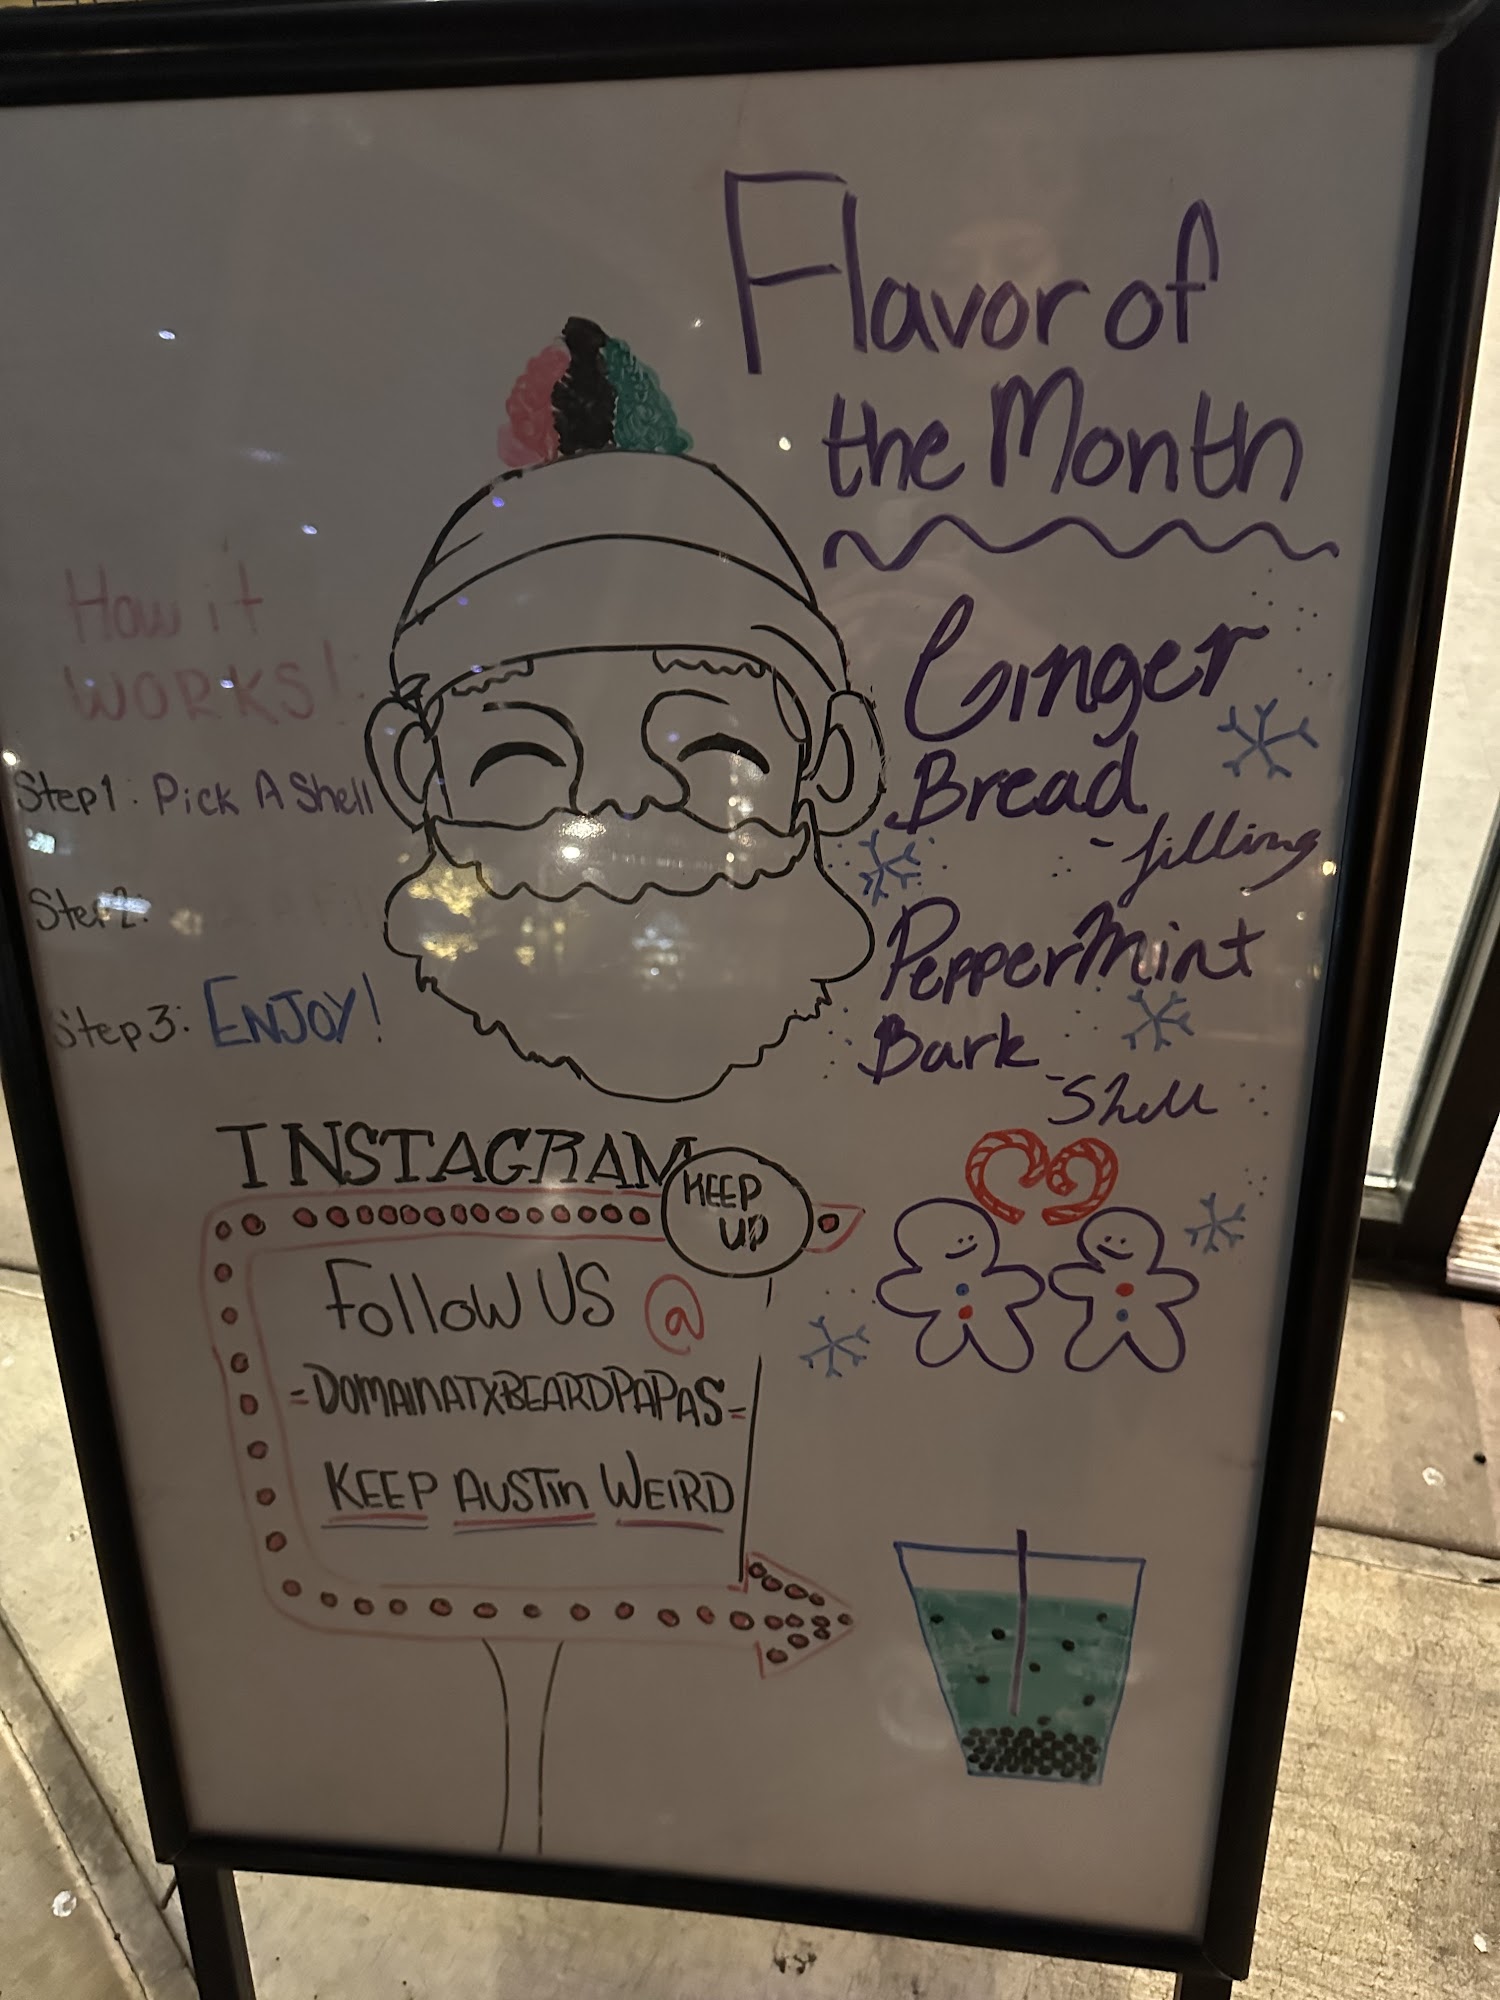 Flavor of
the Month
Ginger
Bread
-filling
PepperMint
Bark
-Shell
How it
WORKS!
Step1: Pick A Shell
Step2:
Step3: ENJOY!
INSTAGRAM
KEEP
UP
Follow US @
=DOMAINATXBEARDPAPAS=
KEEP AUSTIN WEIRD